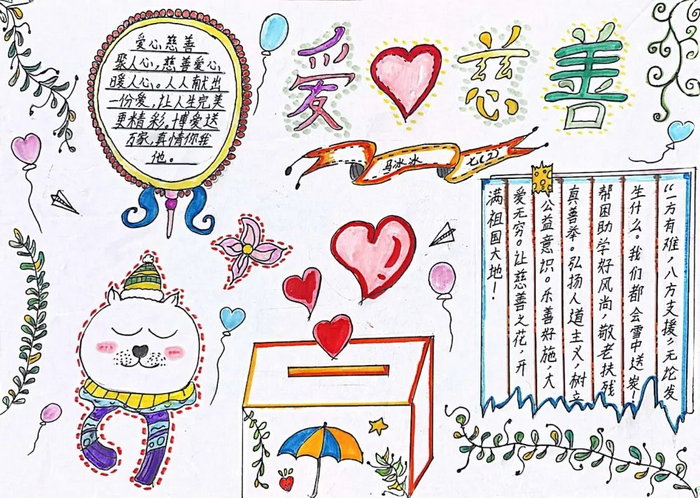 爱慈善
马冰冰
七(2)
爱心慈善
聚人心，慈善爱心，
暖人心。人人献出
一份爱，让人生完美
更精彩，博爱送
万家，真情你我
他。
“一方有难，八方支援，无论发
生什么。我们都会雪中送炭
帮困助学好风尚，敬老扶残
真善举。弘扬人道主义，树立
公益意识。乐善好施，大
爱无穷。让慈善之花，开
满祖国大地！